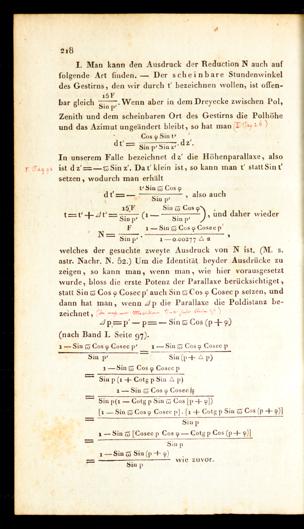 218
I. Man kann den Ausdruck der Reduction N auch auf
folgende Art finden. — Der scheinbare Stundenwinkel
des Gestirns, den wir durch t' bezeichnen wollen, ist offen-
bar gleich 15 F / Sin p'. Wenn aber in dem Dreyecke zwischen Pol,
Zenith und dem scheinbaren Ort des Gestirns die Polhöhe
und das Azimut ungeändert bleibt, so hat man
dt' = Cos φ Sin t' / Sin p' Sin z' . dz'.
In unserem Falle bezeichnet dz' die Höhenparallaxe, also
ist dz' = — ϖ Sin z'. Da t' klein ist, so kann man t' statt Sin t'
setzen, wodurch man erhält
dt' = — t' Sin ϖ Cos φ / Sin p' , also auch
t = t' + dt' = 15 F / Sin p' (1 — Sin ϖ Cos φ / Sin p'), und daher wieder
N = F / Sin p' . 1 — Sin ϖ Cos φ Cosec p' / 1 — 0.00277 △ α ,
welches der gesuchte zweyte Ausdruck von N ist, (M. s.
astr. Nachr. N. 52.) Um die Identität beyder Ausdrücke zu
zeigen, so kann man, wenn man, wie hier vorausgesetzt
wurde, bloss die erste Potenz der Parallaxe berücksichtiget,
statt Sin ϖ Cos φ Cosec p' auch Sin ϖ Cos φ Cosec p setzen, und
dann hat man, wenn △ p die Parallaxe der Poldistanz be-
zeichnet,
△ p = p' — p = — Sin ϖ Cos (p + φ)
(nach Band I. Seite 97).
1 — Sin ϖ Cos φ Cosec p' / Sin p' = 1 — Sin ϖ Cos φ Cosec p / Sin (p + △ p)
= 1 — Sin ϖ Cos φ Cosec p / Sin p (1 + Cotg p Sin △ p)
= 1 — Sin ϖ Cos φ Cosec p / Sin p (1 — Cotg p Sin ϖ Cos [p + φ])
= [1 — Sin ϖ Cos φ Cosec p] . (1 + Cotg p Sin ϖ Cos (p + φ)] / Sin p
= 1 — Sin ϖ [Cosec p Cos φ — Cotg p Cos (p + φ)] / Sin p
= 1 — Sin ϖ Sin (p + φ) / Sin p wie zuvor.